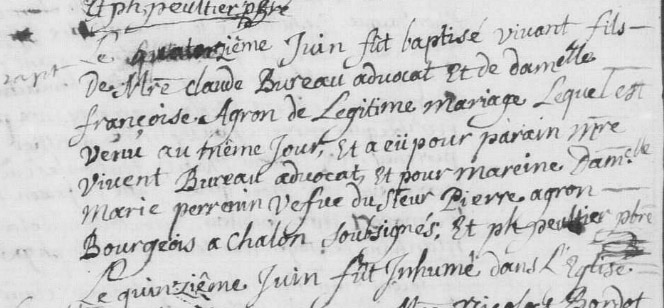 Et ph peultier pbre
Le quatorzième Juin fût baptisé vivant fils
De Mre Claude Bureau advocat Et de damelle
françoise Agron de Legitime mariage Lequel est
Venu au mème Jour, Et a eü pour parain Mre
Vivent Bureau advocat, Et pour mareine Damelle
Marie perronin Vefve du sieur Pierre agron
Bourgeois a Chalon Soubsignés, Et ph peultier pbre
Le quinzième Juin fût Inhumé dans L'Eglise
Nicolas Bordot